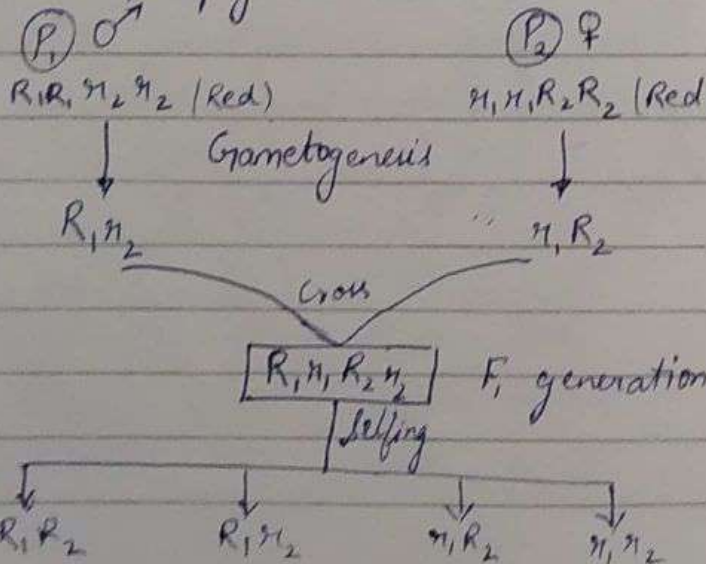 P₁ ♂ P₂ ♀
R₁R₁ r₂ r₂ (Red) r₁r₁R₂R₂ (Red
Gametogenesis
R₁r₂ r₁R₂
Cross
R₁r₁R₂r₂ F₁ generation
Selfing
R₁R₂ R₁r₂ r₁R₂ r₁r₂